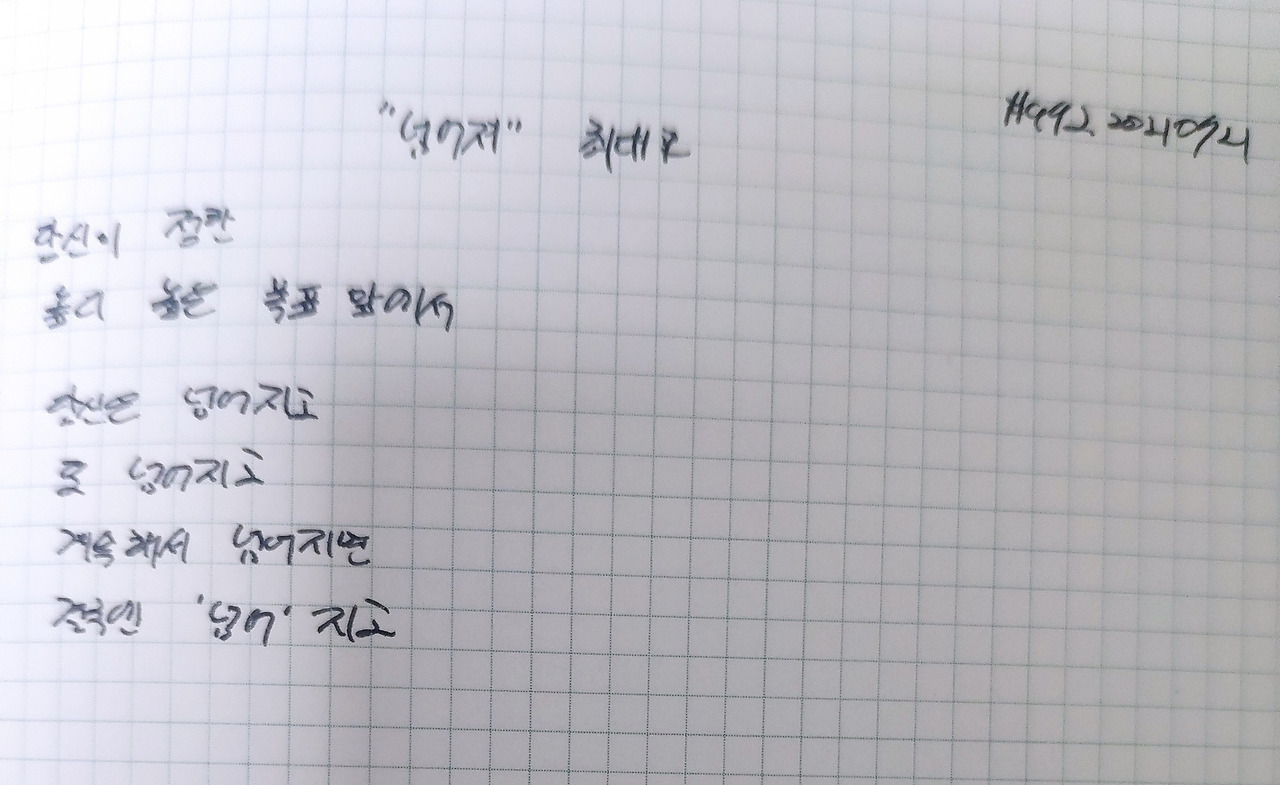 "넘어져" 최대호 #992 20210921
당신이 정한
높디 높은 목표 앞에서
당신은 넘어지고
또 넘어지고
계속해서 넘어지면
결국엔 '넘어' 지고